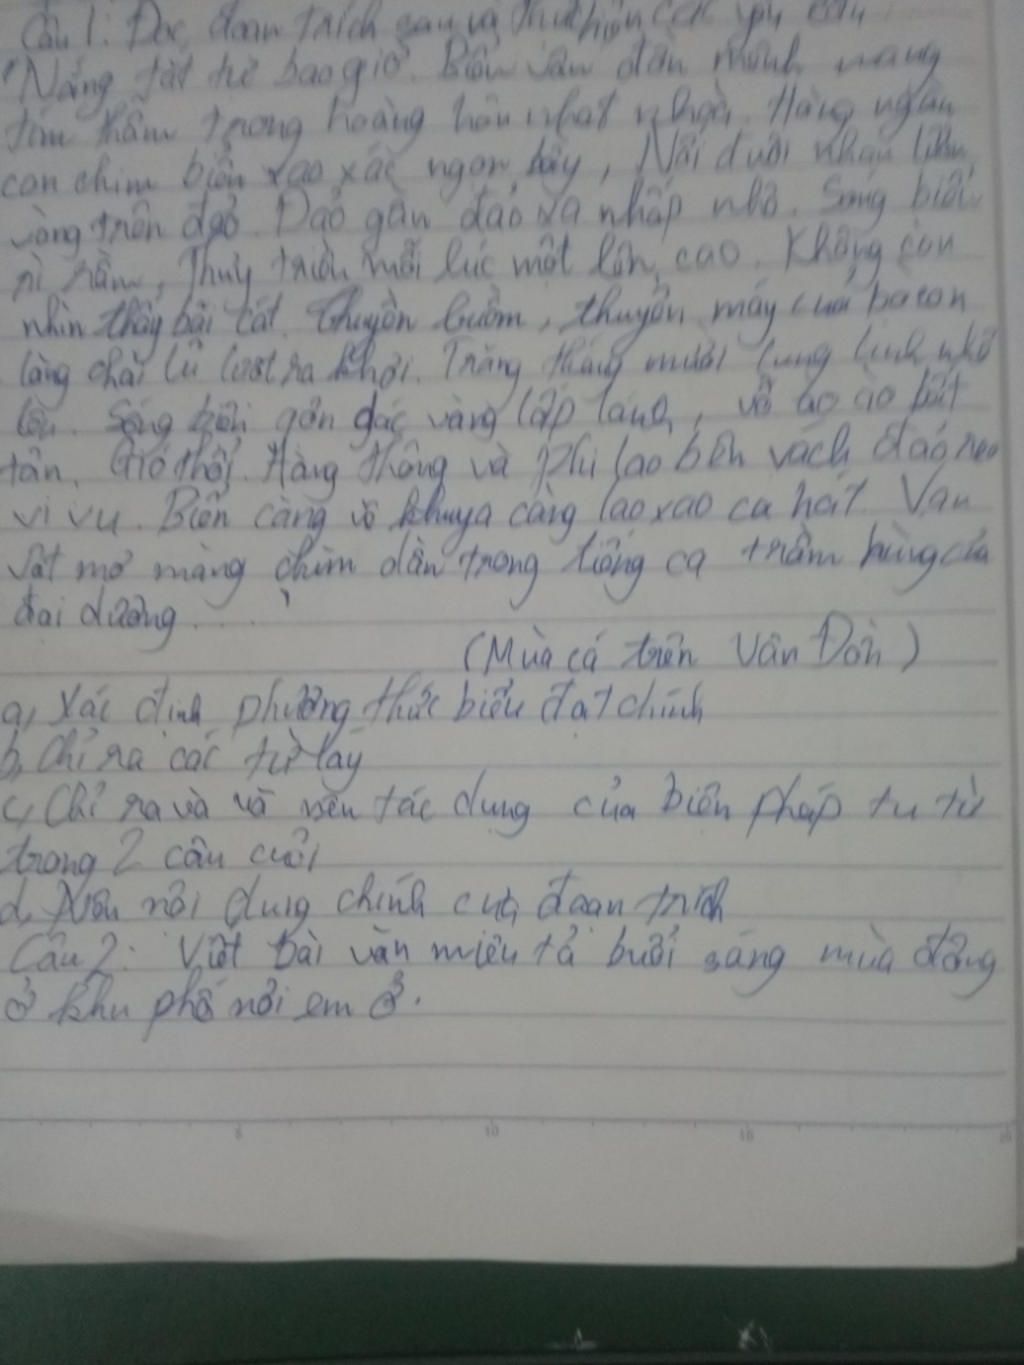 Câu 1: Đọc đoạn trích sau và thực hiện các yêu cầu
"Nắng tắt từ bao giờ. Biển Vân đồn mênh mang
tím thẫm trong hoàng hôn nhạt nhòa. Hàng ngàn
con chim biển xao xác ngọn cây, Nối đuôi nhau liệng
vòng trên đảo. Đảo gần đảo xa nhấp nhô. Sóng biển
rì rầm, Thuỷ triều mỗi lúc một lên cao. Không còn
nhìn thấy bãi cát. Thuyền buồm, thuyền máy của bà con
làng chài lũ lượt ra khơi. Trăng tháng mười lung linh nhô
lên. Sóng biển gợn dác vàng lấp lánh, vỗ ào ào bất
tận. Gió thổi. Hàng thông và phi lao bên vách đá reo
vi vu. Biển càng về khuya càng lao xao ca hát. Vạn
vật mơ màng chìm dần trong tiếng ca trầm hùng của
đại dương....
(Mùa cá trên Vân Đồn)
a, Xác định phương thức biểu đạt chính
b, Chỉ ra các từ láy
c, Chỉ ra và và nêu tác dụng của biện pháp tu từ
trong 2 câu cuối
d, Nêu nội dung chính của đoạn trích
Câu 2: Viết bài văn miêu tả buổi sáng mùa đông
ở khu phố nơi em ở.
5 10 15 20